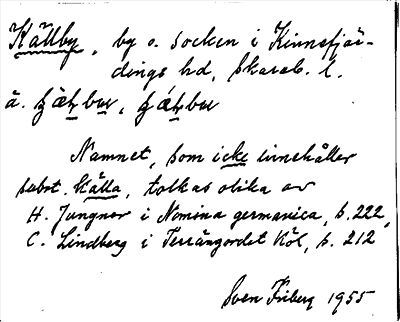 Källby, by o. socken i Kinnefjär-
dings hd, Skarab. l.
Namnet, som icke innehåller
subst. källa, tolkas olika av
H. Jungner i Nomina germanica, s. 222,
C. Lindberg i Terrängordet Köl, s. 212
Sven Friberg 1955